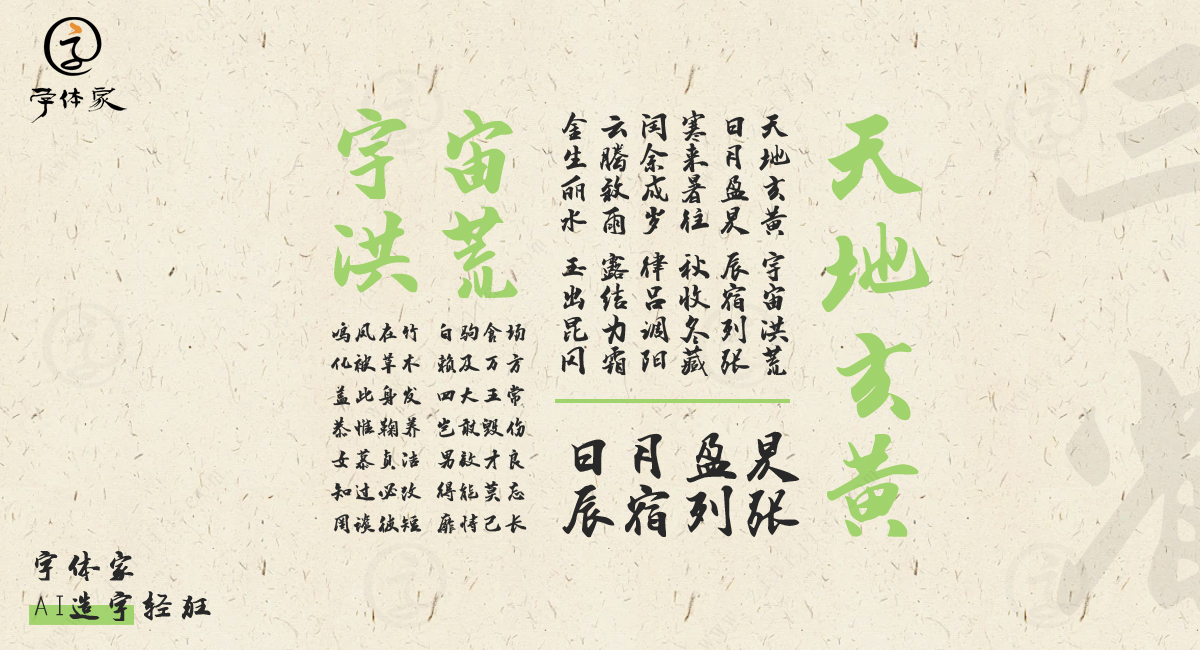 字体家
天地玄黄
宇宙
洪荒
天地玄黄 宇宙洪荒
日月盈昃 辰宿列张
寒来暑往 秋收冬藏
闰余成岁 律吕调阳
云腾致雨 露结为霜
金生丽水 玉出昆冈
鸣凤在竹 白驹食场
化被草木 赖及万方
盖此身发 四大五常
恭惟鞠养 岂敢毁伤
女慕贞洁 男效才良
知过必改 得能莫忘
罔谈彼短 靡恃己长
日月盈昃
辰宿列张
字体家
AI造字轻狂